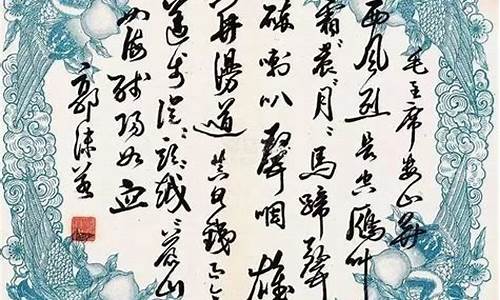 毛主席娄山关
西风烈长空雁叫
霜晨〻月〻马蹄声
碎喇叭声咽雄
关漫道真如铁而今
迈步从〻头〻越〻苍山
如海残阳如血
郭沫若